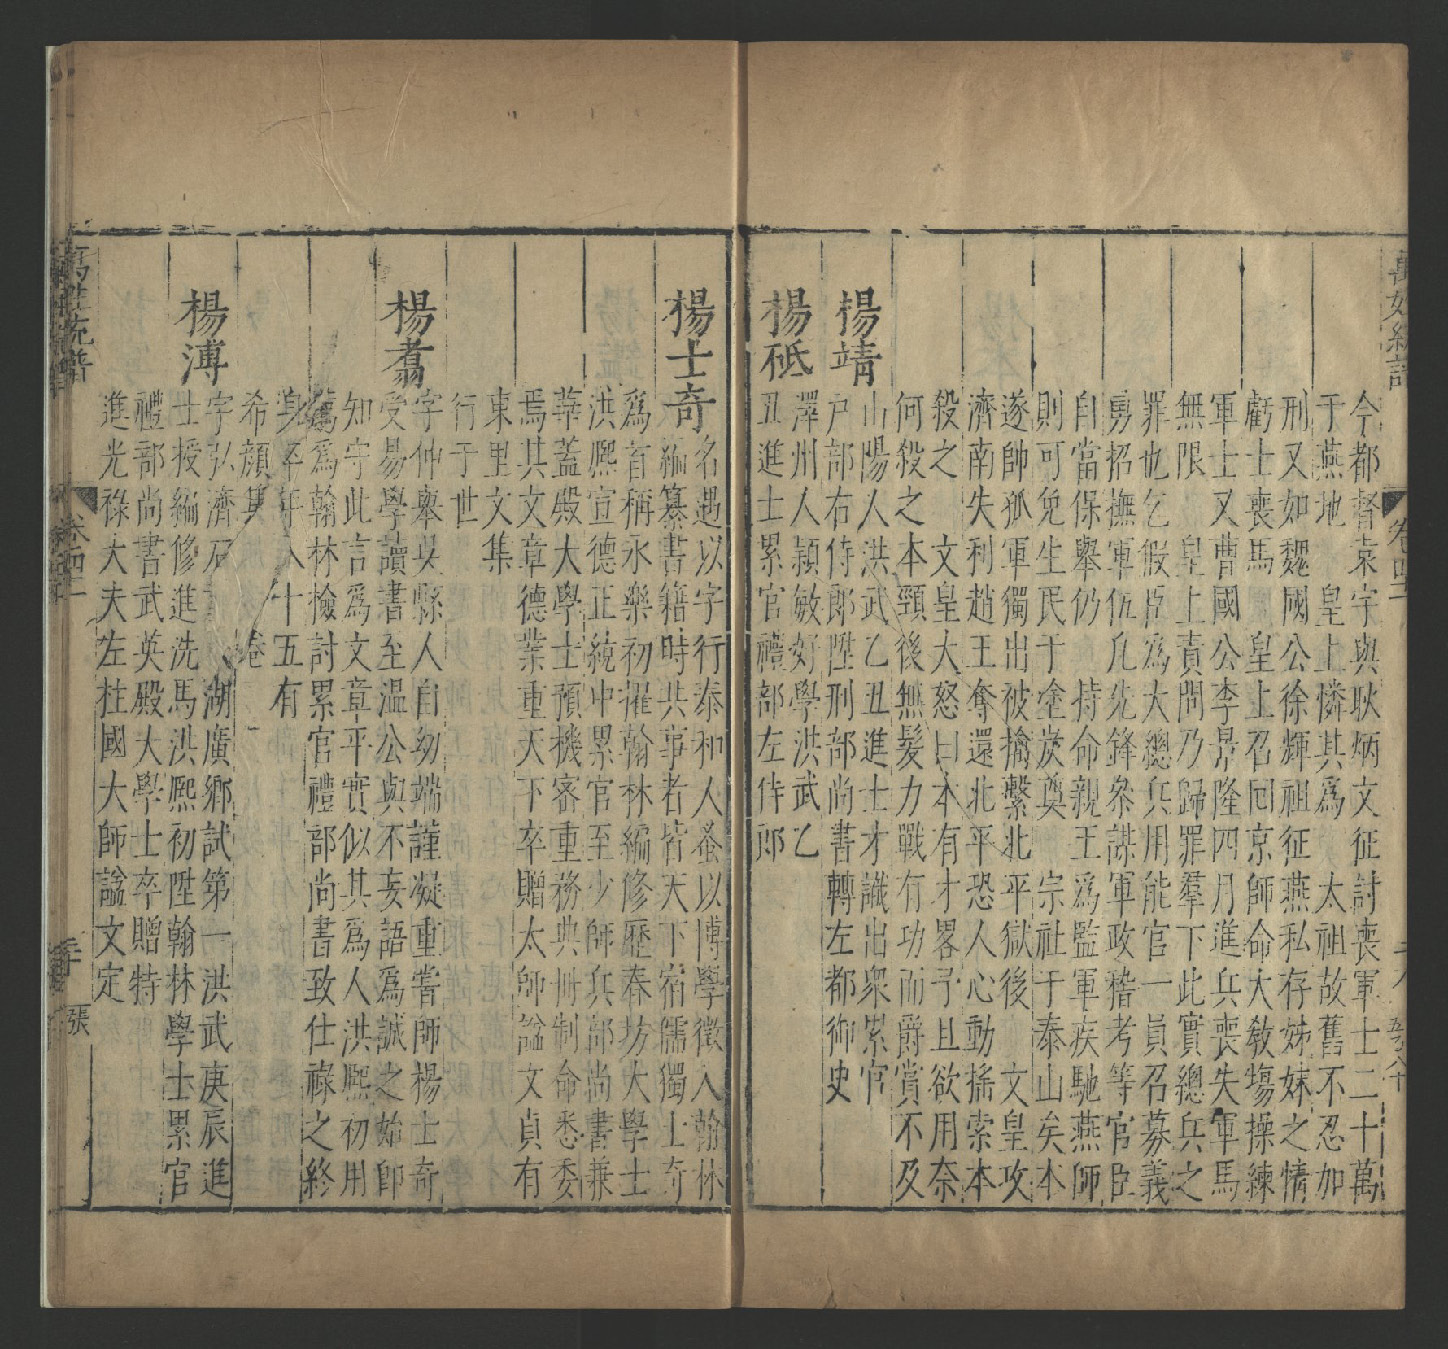 萬姓統譜
卷四十一
今都督袁宇與耿炳文征討喪軍士二十萬
于燕地 皇上憐其爲 太祖故舊不忍加
刑又如魏國公徐輝祖征燕私存姊妹之情
虧士喪馬 皇上召回京師命大教塲操練
軍士又曹國公李景隆四月進兵喪失軍馬
無限 皇上責問乃歸罪羣下此實總兵之
罪也乞假臣爲大總兵用能官一員召募義
勇招撫軍伍凢先鋒叅謀軍政稽考等官臣
自當保舉仍 持命親王爲監軍疾馳燕師
則可免生民于塗炭奠 宗社于泰山矣本
遂帥孤軍獨出被擒繫北平獄後 文皇攻
濟南失利趙王奪還北平恐人心動搖索本
殺之 文皇大怒曰本有才畧予且欲用奈
何殺之本頸後無髪力戰有功而爵賞不及
楊靖
山陽人洪武乙丑進士才識出衆累官
戸部右侍郎陞刑部尚書轉左都御史
楊砥
澤州人穎敏好學洪武乙
丑進士累官禮部左侍郎
楊士奇
名遇以字行泰和人蚤以博學徴入翰林
編纂書籍時共事者皆天下宿儒獨士奇
爲首稱永樂初擢翰林編修歴春坊大學士
洪熈宣德正統中累官至少師兵部尚書兼
華蓋殿大學士預機密重務典冊制命悉委
焉其文章德業重天下卒贈太師謚文貞有
東里文集
行于世
楊翥
字仲舉吳縣人自幼端謹凝重嘗師楊士奇
受易學讀書至温公與不妄語爲誠之始即
知守此言爲文章平實似其爲人洪熈初用
薦爲翰林檢討累官禮部尚書致仕祿之終
身卒年八十五有
希顔其 卷
楊溥
字弘濟石 湖廣鄉試第一洪武庚辰進
士授編修進洗馬洪熈初陞翰林學士累官
禮部尚書武英殿大學士卒贈特
進光祿大夫左柱國大師謚文定
萬姓統譜
卷四十一
三十
張